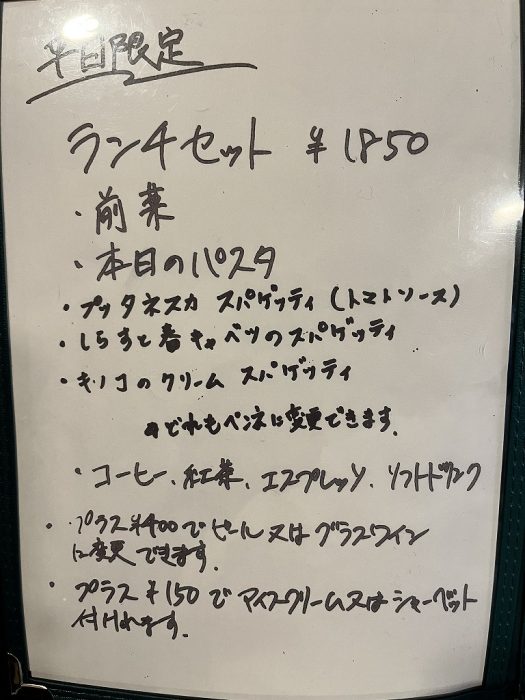 平日限定
ランチセット ¥1850
・前菜
・本日のパスタ
・プッタネスカ スパゲッティ (トマトソース)
・しらすと春キャベツのスパゲッティ
・キノコのクリーム スパゲッティ
※どれもペンネに変更できます.
・コーヒー、紅茶、エスプレッソ、ソフトドリンク
・プラス¥400でビール又はグラスワイン
に変更できます.
・プラス¥150でアイスクリーム又はシャーベット
付けれます.